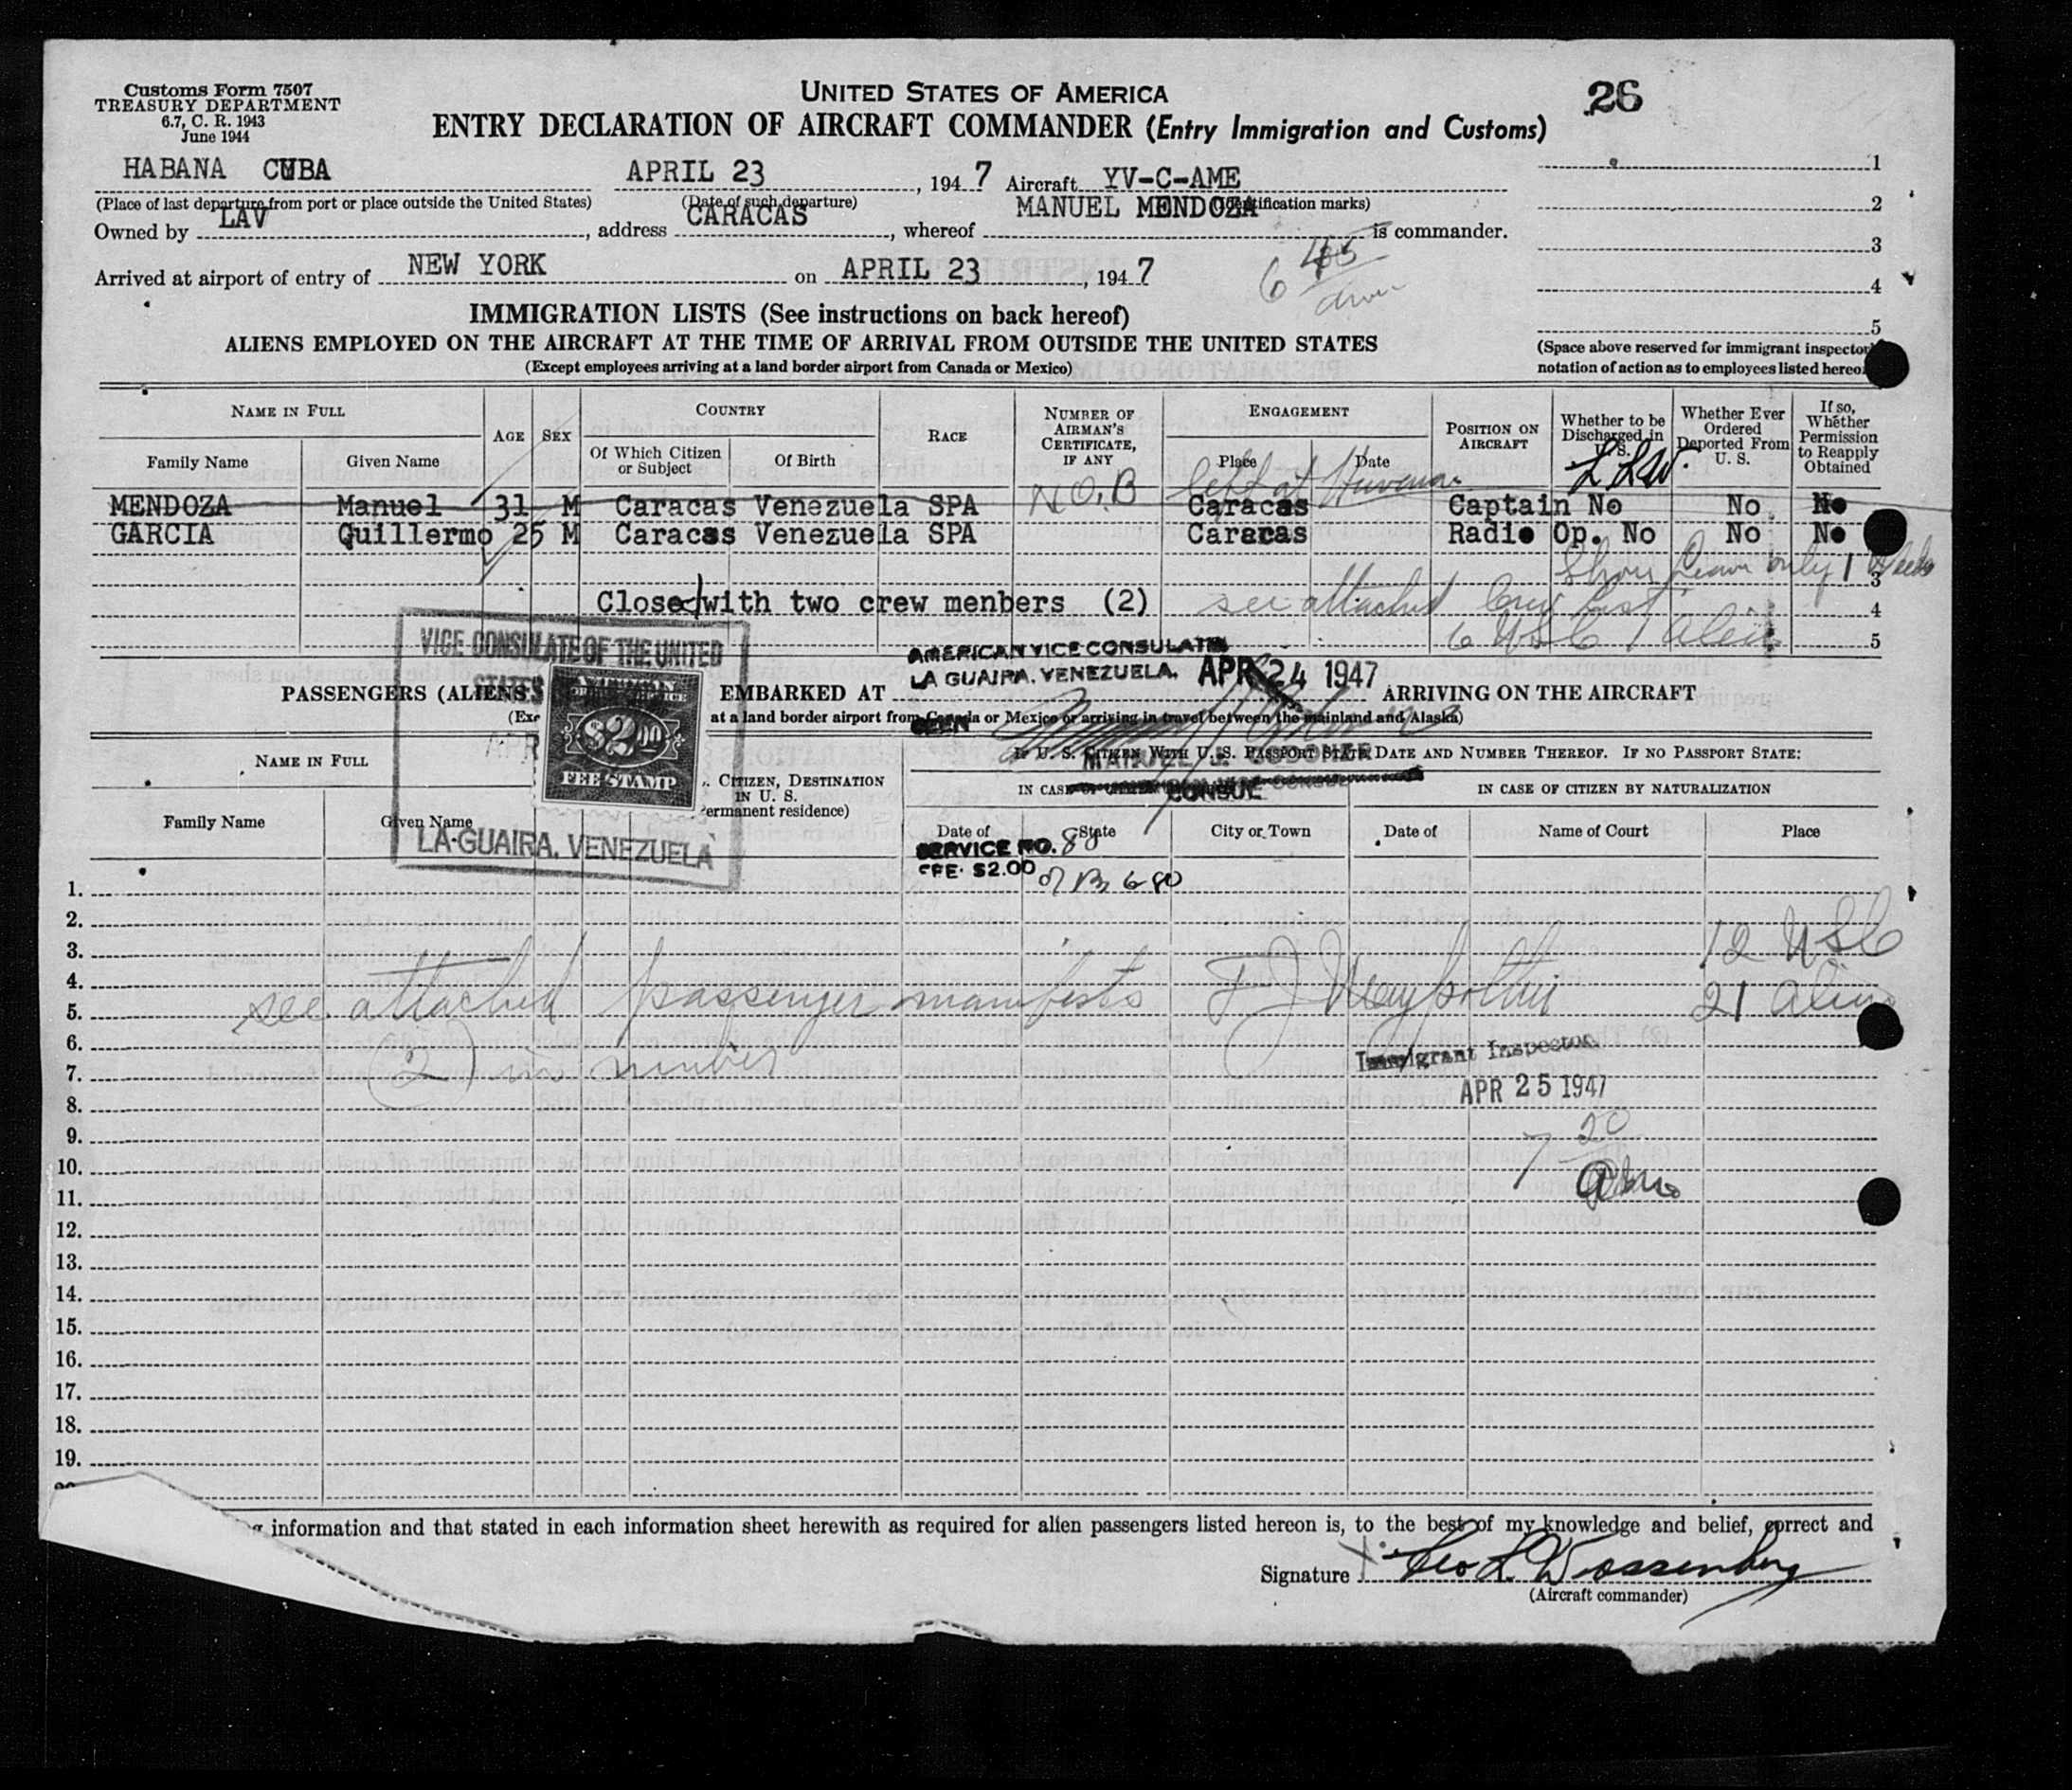 Customs Form 7507
TREASURY DEPARTMENT
6.7, C. R. 1943
June 1944
UNITED STATES OF AMERICA
26
ENTRY DECLARATION OF AIRCRAFT COMMANDER (Entry Immigration and Customs)
HABANA CUBA APRIL 23, 1947 Aircraft YV-C-AME
(Place of last departure from port or place outside the United States) (Date of such departure) (Identification marks)
Owned by LAV, address CARACAS, whereof MANUEL MENDOZA is commander.
Arrived at airport of entry of NEW YORK on APRIL 23, 1947
6 45
1
2
3
4
5
IMMIGRATION LISTS (See instructions on back hereof)
ALIENS EMPLOYED ON THE AIRCRAFT AT THE TIME OF ARRIVAL FROM OUTSIDE THE UNITED STATES
(Except employees arriving at a land border airport from Canada or Mexico)
(Space above reserved for immigrant inspector
notation of action as to employees listed hereo
NAME IN FULL
Family Name Given Name
AGE SEX
COUNTRY
Of Which Citizen or Subject Of Birth
RACE
NUMBER OF AIRMAN'S CERTIFICATE, IF ANY
ENGAGEMENT
Place Date
POSITION ON AIRCRAFT
Whether to be Discharged in U. S.
Whether Ever Ordered Deported From U. S.
If so, Whether Permission to Reapply Obtained
left at Havana
MENDOZA Manuel 31 M Caracas Venezuela SPA N.O.B Caracas Captain No No No
GARCIA Guillermo 25 M Caracas Venezuela SPA Caracas Radio Op. No No No
only 1
3
Closed with two crew menbers (2) see attached Crew List 4
6 USC 1 Alien 5
VICE CONSULATE OF THE UNITED
STATES
AMERICAN
$2.00
FEE STAMP
APR
LA GUAIRA, VENEZUELA
AMERICAN VICE CONSULATE
LA GUAIRA, VENEZUELA. APR 24 1947
PASSENGERS (ALIENS EMBARKED AT ARRIVING ON THE AIRCRAFT
(Exc at a land border airport from Canada or Mexico or arriving in travel between the mainland and Alaska)
SEEN
CONSUL
NAME IN FULL
Family Name Given Name
. CITIZEN, DESTINATION
IN U. S.
ermanent residence)
IF U. S. CITIZEN WITH U. S. PASSPORT STATE DATE AND NUMBER THEREOF. IF NO PASSPORT STATE:
IN CASE OF IN CASE OF CITIZEN BY NATURALIZATION
Date of State City or Town Date of Name of Court Place
SERVICE NO. 88
FEE. $2.00
1.
2.
12 USC
3.
4.
see attached passenger manifests 21 Aliens
5.
6.
(2) in number
Immigrant Inspector
7.
APR 25 1947
8.
7 20
9.
10.
11.
12.
13.
14.
15.
16.
17.
18.
19.
information and that stated in each information sheet herewith as required for alien passengers listed hereon is, to the best of my knowledge and belief, correct and
Signature Geo L.
(Aircraft commander)